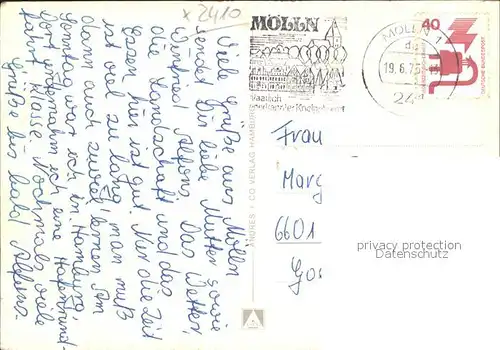 x 2410
Viele Grüße aus Mölln
sendet Dir liebe Mutter sowie
Winfried Alfons. Das Wetter,
die Landschaft und das
Essen hier ist gut. Nur die Zeit
ist viel zu lang, man muß
dann auch zuviel lernen. Am
Samstag war ich in Hamburg,
dort unternahm ich eine Hafenrund-
fahrt. Klasse. Nochmals viele
Grüße bis bald Alfons.
MÖLLN
Kneippkurort
MÖLLN 1
19.6.75
24
40
DEUTSCHE BUNDESPOST
ANDRES + CO VERLAG HAMBURG
Frau
Marg
6601
privacy protection
Datenschutz